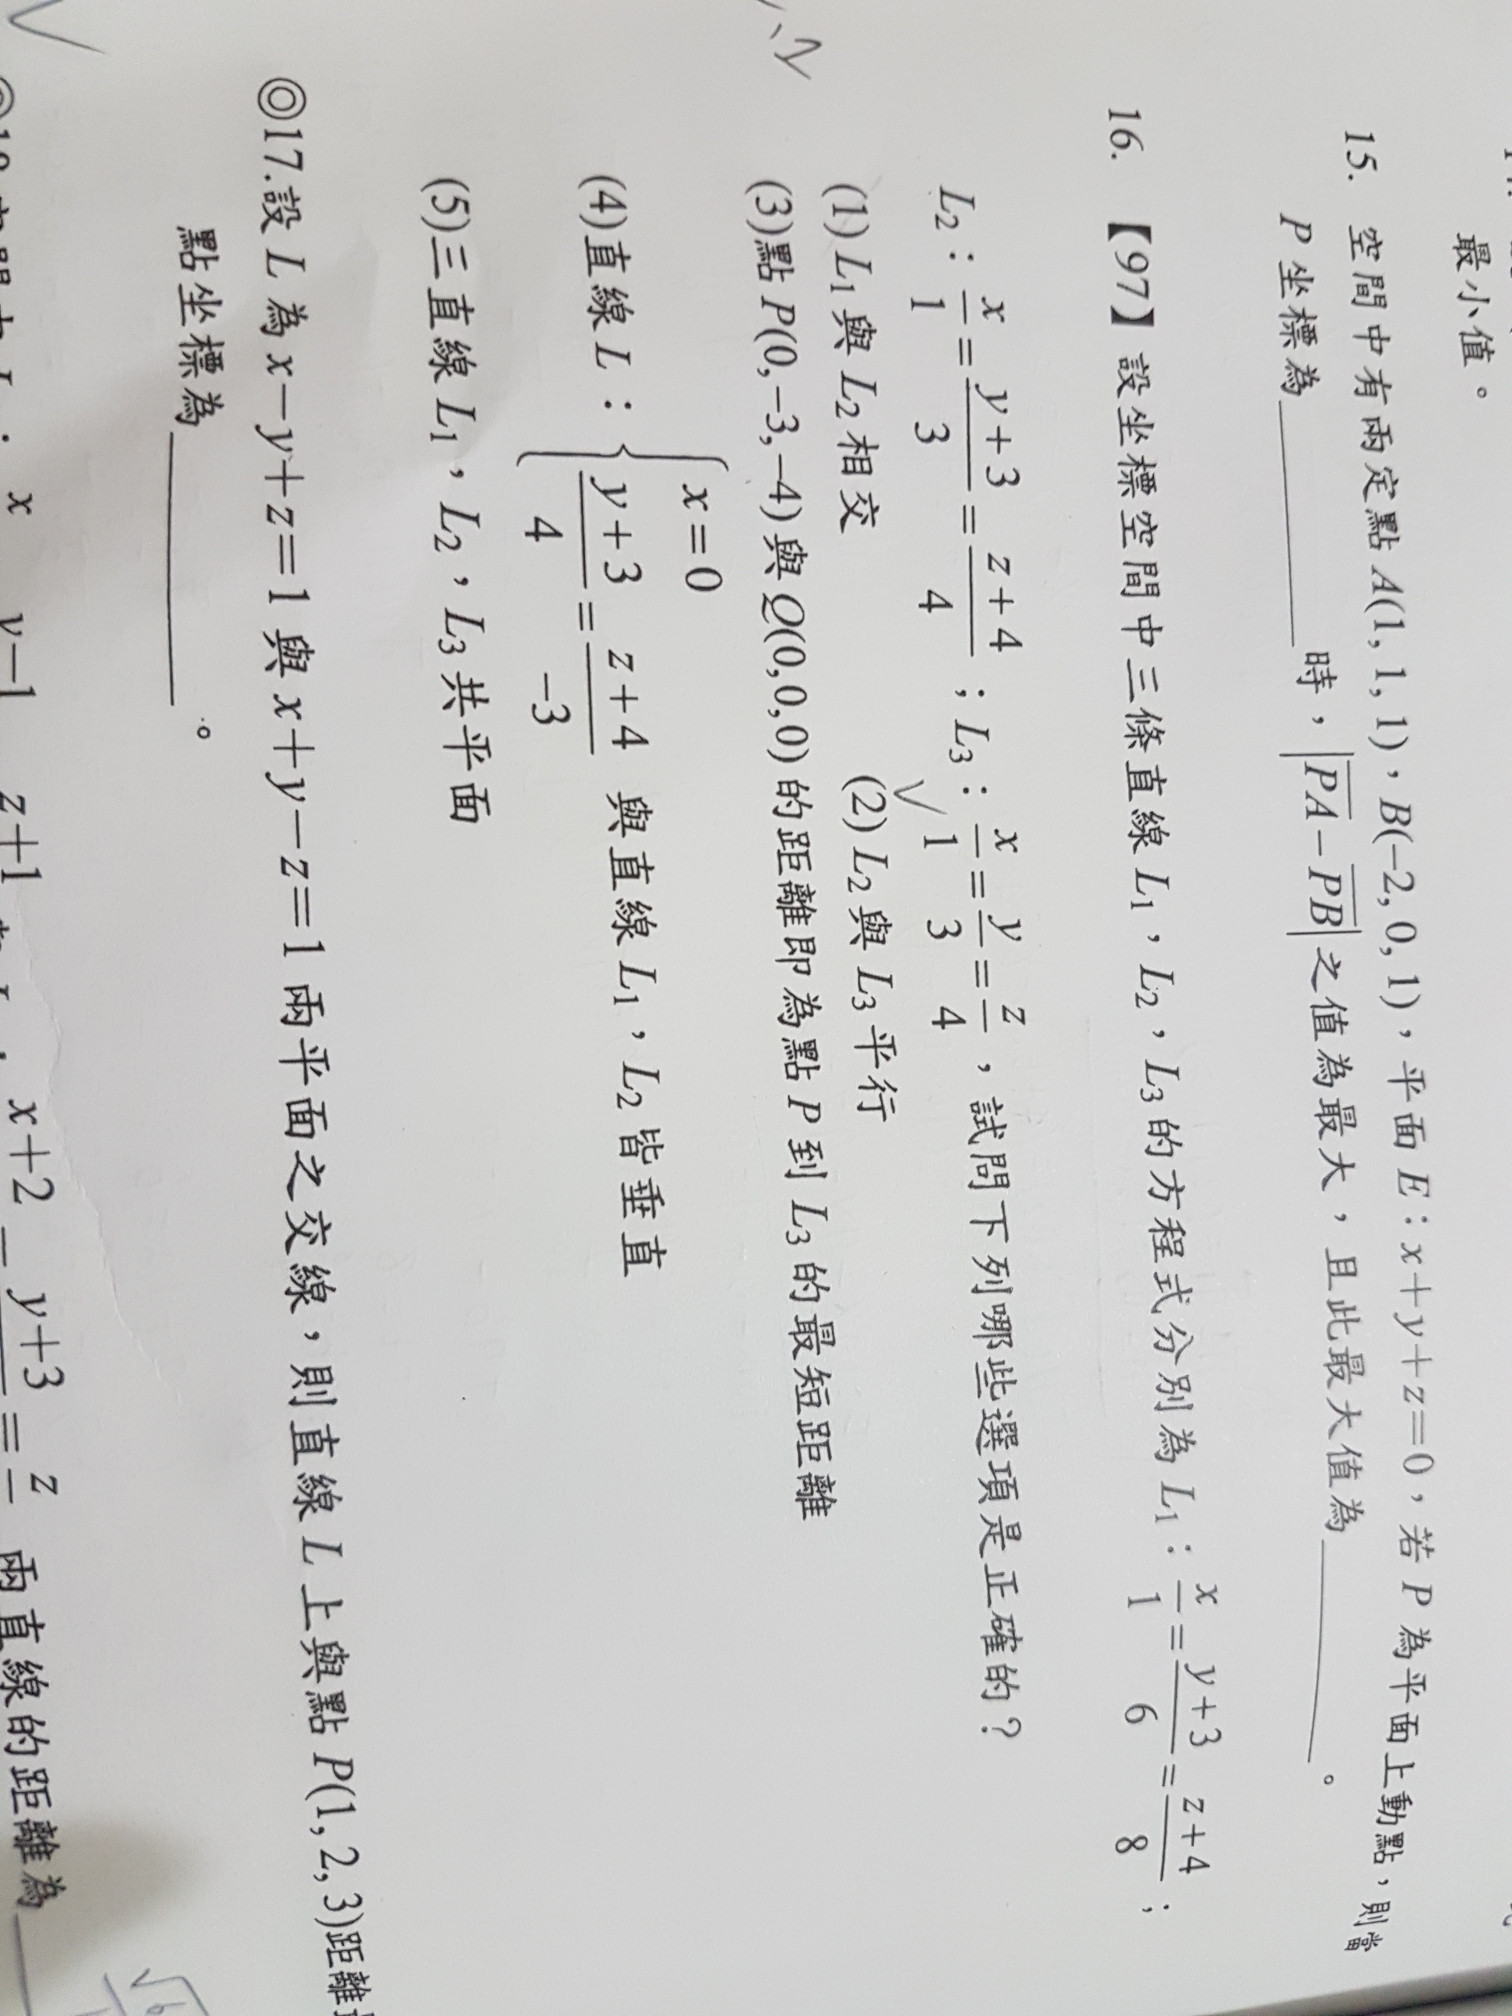 最小值。
15. 空間中有兩定點 A(1, 1, 1)，B(−2, 0, 1)，平面 E : x+y+z=0，若 P 為平面上動點，則當
P 坐標為________時，|PA−PB| 之值為最大，且此最大值為________。
16. 【97】設坐標空間中三條直線 L₁，L₂，L₃ 的方程式分別為 L₁ : x/1 = (y+3)/6 = (z+4)/8；
L₂ : x/1 = (y+3)/3 = (z+4)/4；L₃ : x/1 = y/3 = z/4，試問下列哪些選項是正確的？
(1) L₁ 與 L₂ 相交 (2) L₂ 與 L₃ 平行
(3)點 P(0, −3, −4) 與 Q(0, 0, 0) 的距離即為點 P 到 L₃ 的最短距離
(4)直線 L : { x=0
(y+3)/4 = (z+4)/−3 與直線 L₁，L₂ 皆垂直
(5)三直線 L₁，L₂，L₃ 共平面
◎17.設 L 為 x−y+z=1 與 x+y−z=1 兩平面之交線，則直線 L 上與點 P(1, 2, 3)距離
點坐標為________。
x+2 y+3 = z 兩直線的距離為